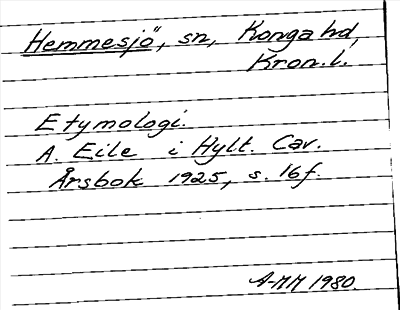 Hemmesjö, sn, Konga hd,
Kron. l.
Etymologi.
A. Eile i Hylt. Cav.
Årsbok 1925, s. 16f.
A-MM 1980.